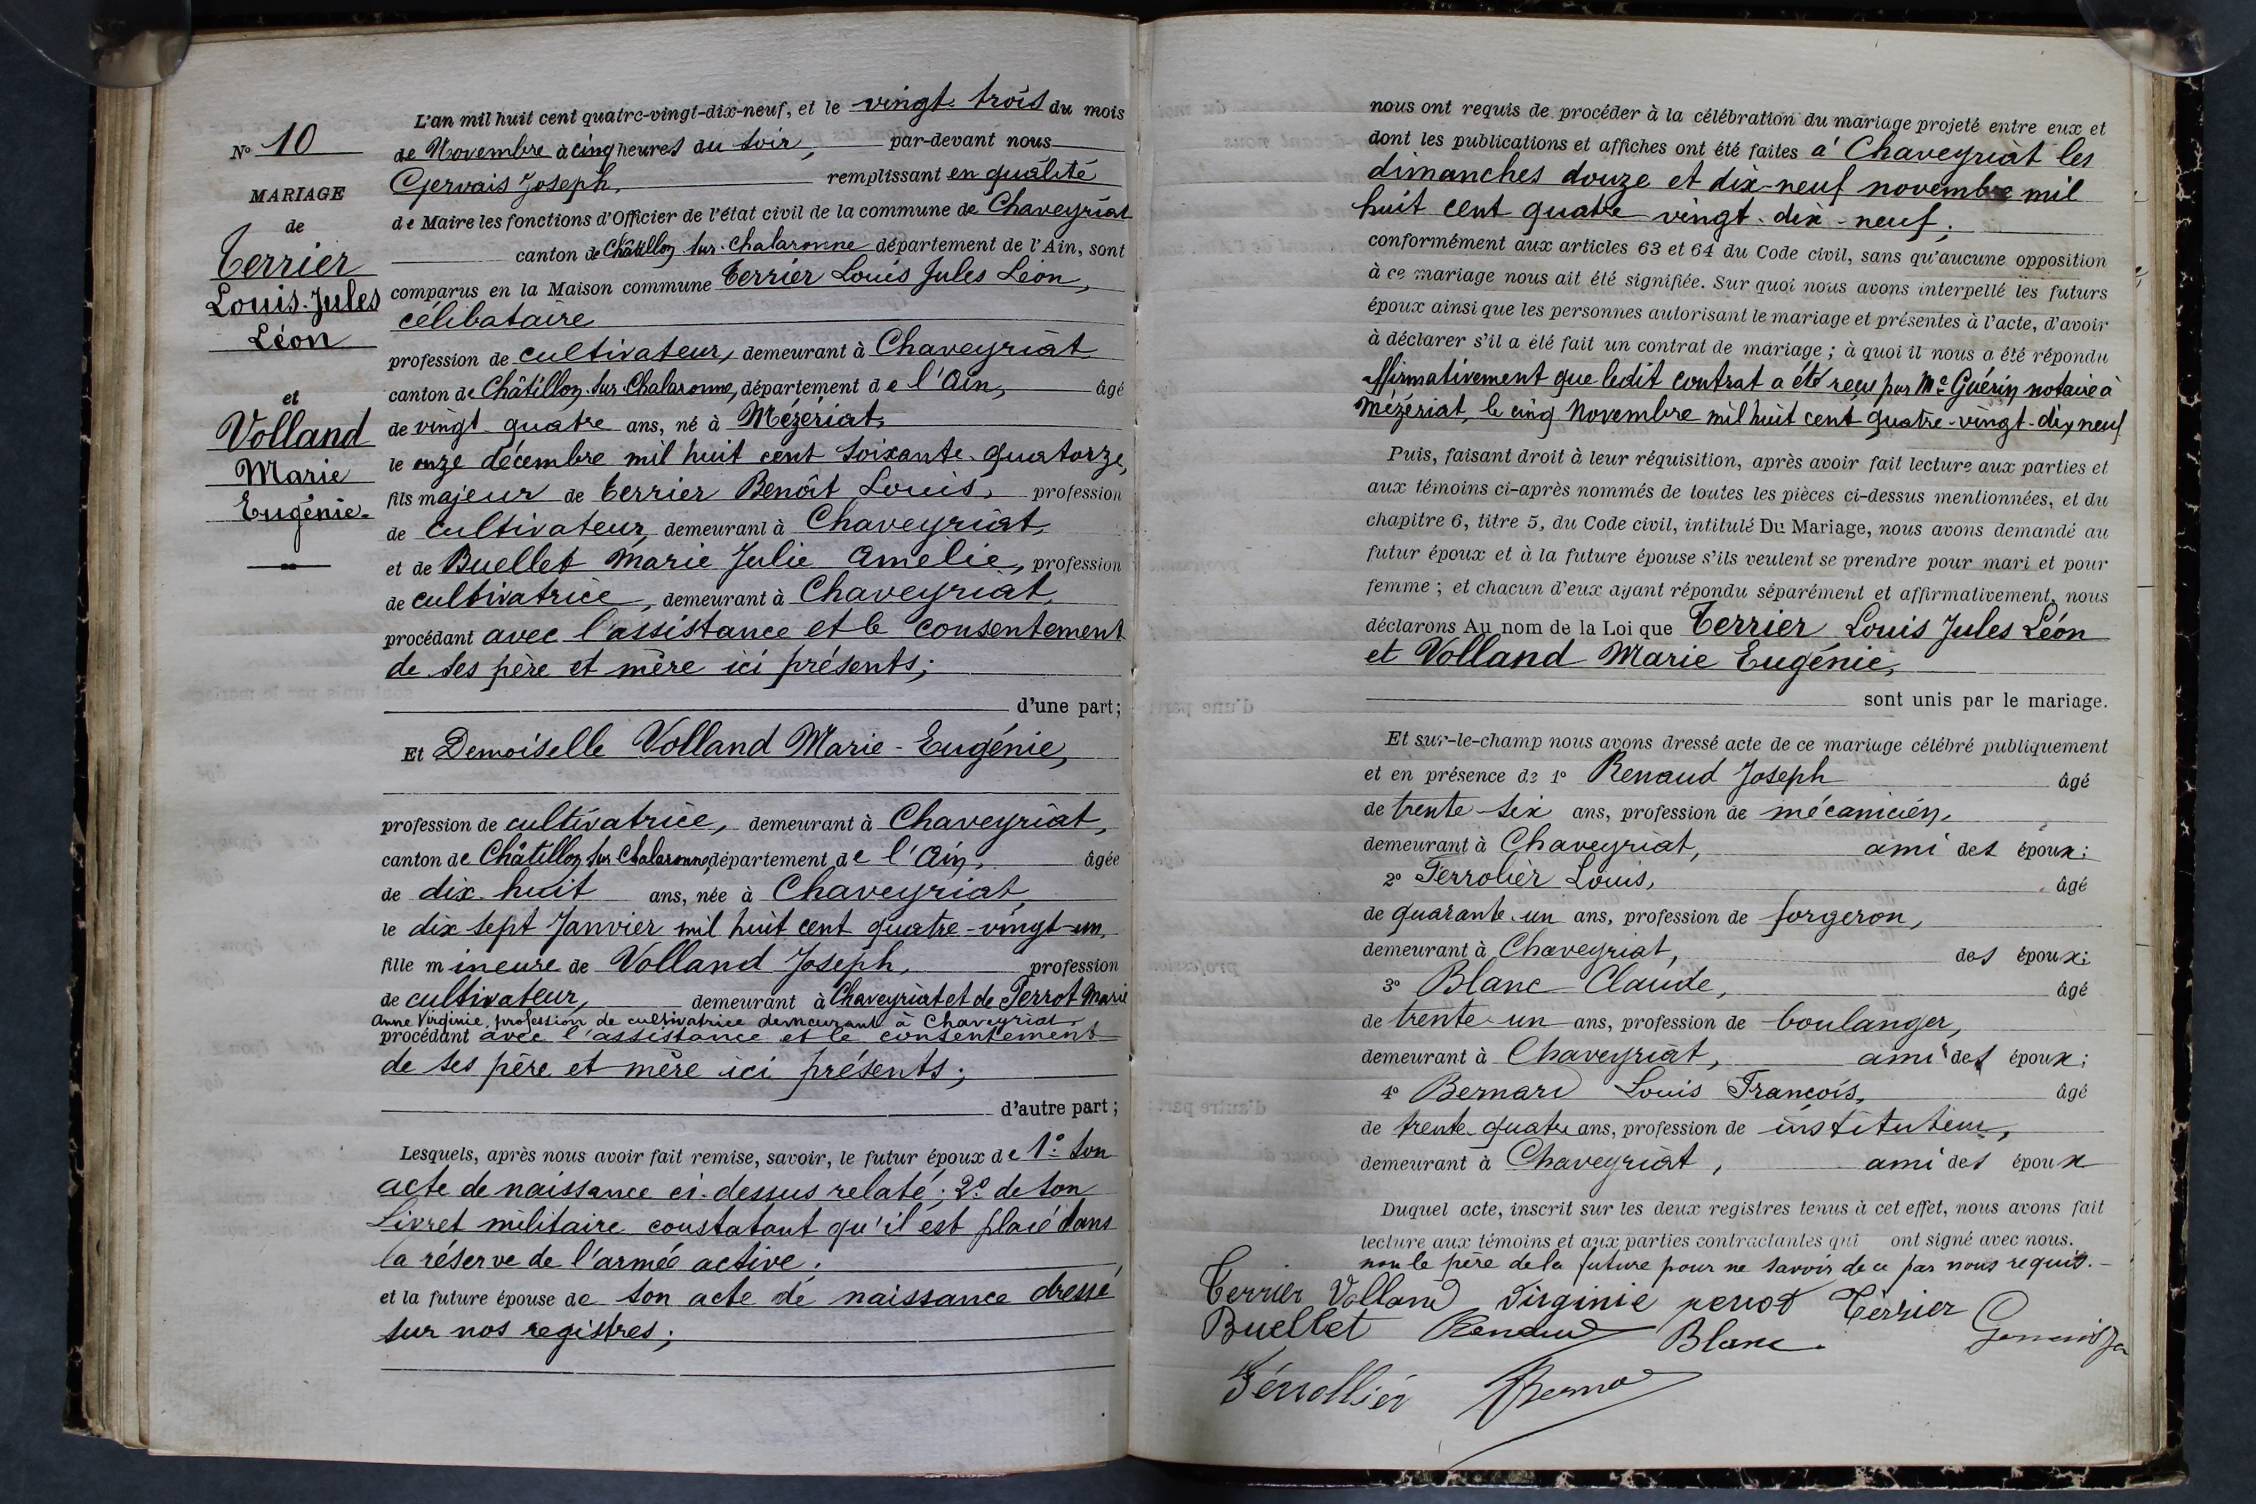 N° 10
MARIAGE
de
Terrier
Louis-Jules
Léon
et
Volland
Marie
Eugénie
L'an mil huit cent quatre-vingt-dix-neuf, et le vingt trois du mois
de Novembre à cinq heures du soir, par-devant nous
Gervais Joseph, remplissant en qualité
de Maire les fonctions d'Officier de l'état civil de la commune de Chaveyriat
canton de Châtillon sur Chalaronne département de l'Ain, sont
comparus en la Maison commune Terrier Louis Jules Léon,
célibataire
profession de cultivateur, demeurant à Chaveyriat
canton de Châtillon sur Chalaronne, département de l'Ain, âgé
de vingt quatre ans, né à Mézériat,
le onze décembre mil huit cent soixante-quatorze,
fils majeur de Terrier Benoît Louis, profession
de cultivateur, demeurant à Chaveyriat,
et de Buellet Marie Julie Amélie, profession
de cultivatrice, demeurant à Chaveyriat,
procédant avec l'assistance et le consentement
de ses père et mère ici présents;
d'une part;
Et Demoiselle Volland Marie-Eugénie,
profession de cultivatrice, demeurant à Chaveyriat,
canton de Châtillon sur Chalaronne, département de l'Ain, âgée
de dix-huit ans, née à Chaveyriat,
le dix sept Janvier mil huit cent quatre-vingt-un,
fille mineure de Volland Joseph, profession
de cultivateur, demeurant à Chaveyriat et de Perrot Marie
Anne Virginie, profession de cultivatrice demeurant à Chaveyriat,
procédant avec l'assistance et le consentement
de ses père et mère ici présents;
d'autre part;
Lesquels, après nous avoir fait remise, savoir, le futur époux de 1° son
acte de naissance ci-dessus relaté; 2° de son
Livret militaire constatant qu'il est placé dans
la réserve de l'armée active;
et la future épouse de son acte de naissance dressé
sur nos registres;
nous ont requis de procéder à la célébration du mariage projeté entre eux et
dont les publications et affiches ont été faites à Chaveyriat les
dimanches douze et dix-neuf novembre mil
huit cent quatre vingt-dix-neuf;
conformément aux articles 63 et 64 du Code civil, sans qu'aucune opposition
à ce mariage nous ait été signifiée. Sur quoi nous avons interpellé les futurs
époux ainsi que les personnes autorisant le mariage et présentes à l'acte, d'avoir
à déclarer s'il a été fait un contrat de mariage; à quoi il nous a été répondu
affirmativement que ledit contrat a été reçu par Me Guérin notaire à
Mézériat, le cinq Novembre mil huit cent quatre-vingt-dix neuf
Puis, faisant droit à leur réquisition, après avoir fait lecture aux parties et
aux témoins ci-après nommés de toutes les pièces ci-dessus mentionnées, et du
chapitre 6, titre 5, du Code civil, intitulé Du Mariage, nous avons demandé au
futur époux et à la future épouse s'ils veulent se prendre pour mari et pour
femme; et chacun d'eux ayant répondu séparément et affirmativement, nous
déclarons Au nom de la Loi que Terrier Louis Jules Léon
et Volland Marie Eugénie,
sont unis par le mariage.
Et sur-le-champ nous avons dressé acte de ce mariage célébré publiquement
et en présence de 1° Renaud Joseph âgé
de trente-six ans, profession de mécanicien,
demeurant à Chaveyriat, ami des époux;
2° Ferrolier Louis, âgé
de quarante-un ans, profession de forgeron,
demeurant à Chaveyriat, des époux;
3° Blanc Claude, âgé
de trente-un ans, profession de boulanger,
demeurant à Chaveyriat, ami des époux;
4° Bernard Louis François, âgé
de trente-quatre ans, profession de instituteur,
demeurant à Chaveyriat, ami des époux
Duquel acte, inscrit sur les deux registres tenus à cet effet, nous avons fait
lecture aux témoins et aux parties contractantes qui ont signé avec nous.
non le père de la future pour ne savoir de ce par nous requis.
Terrier Volland Virginie perrot Terrier
Buellet Renaud Blanc Gervais
Férrollier Bernard